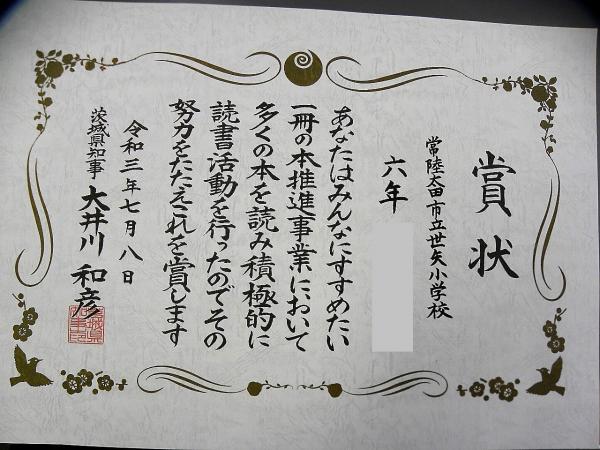 賞状
常陸太田市立世矢小学校
六年
あなたはみんなにすすめたい
一冊の本推進事業において
多くの本を読み積極的に
読書活動を行ったのでその
努力をたたえこれを賞します
令和三年七月八日
茨城県知事 大井川 和彦